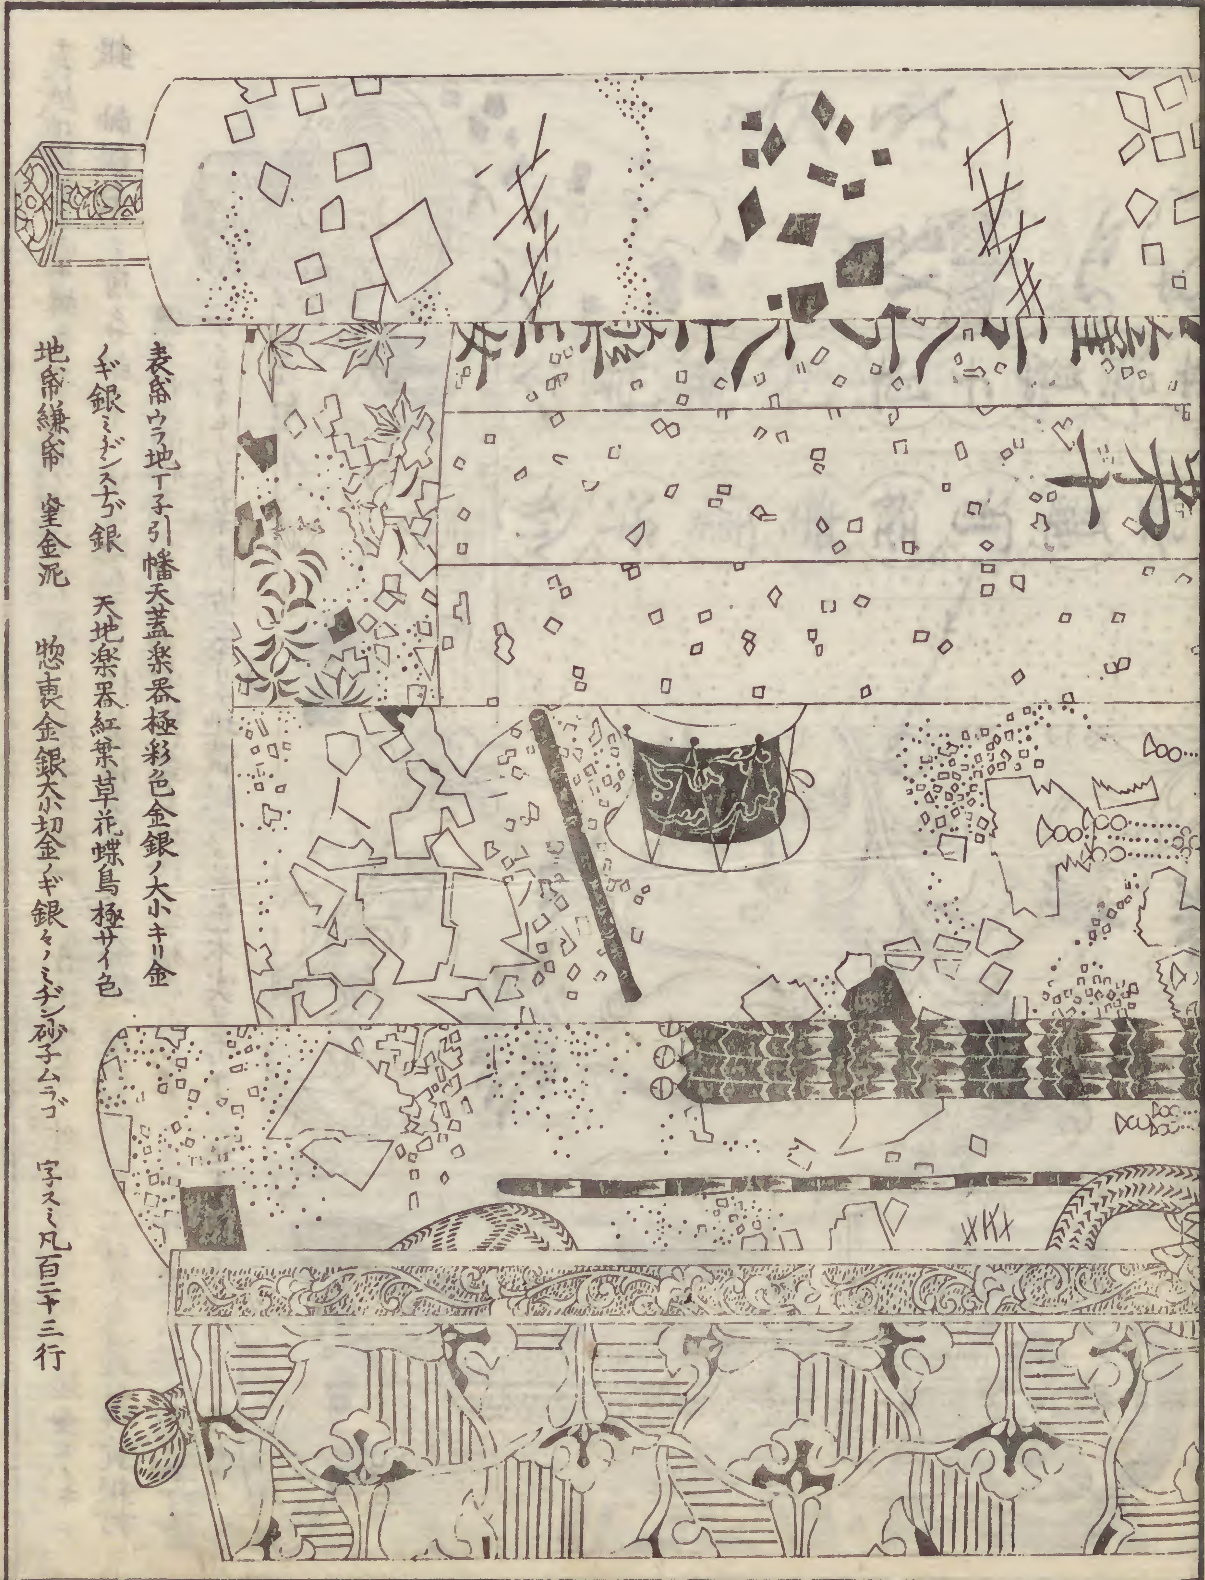 表帋ウラ地丁子引幡天蓋楽器極彩色金銀ノ大小キリ金
ノギ銀ミヂンスナゴ銀　天地楽器紅葉草花蝶鳥極サイ色
地帋縑帋　金泥　惣裏金銀大小切金ノギ銀々ノミヂン砂子ムラゴ　字スミ凡百二十三行